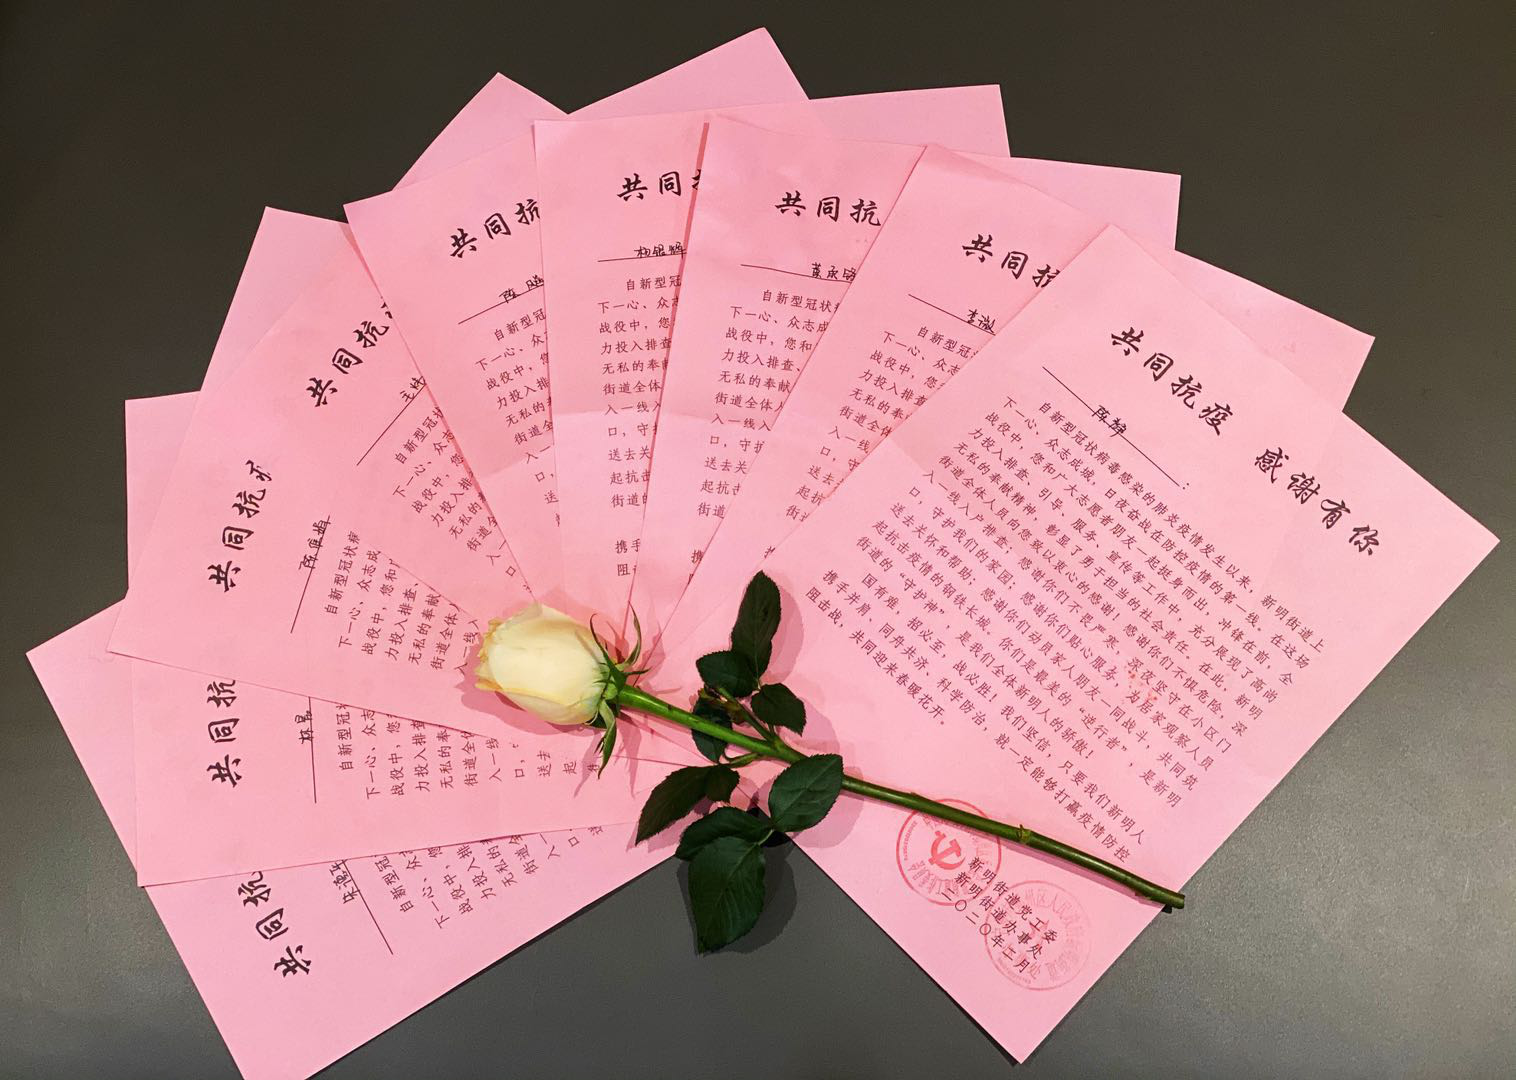 共同抗疫 感谢有你
:
自新型冠状病毒感染的肺炎疫情发生以来，新明街道上
下一心、众志成城，日夜奋战在防控疫情的第一线，在这场
战役中，您和广大志愿者朋友一起挺身而出，冲锋在前，全
力投入排查、引导、服务、宣传等工作中，充分展现了高尚
无私的奉献精神，彰显了勇于担当的社会责任。在此，新明
街道全体人员向您致以衷心的感谢！感谢你们不惧危险，深
入一线入户排查；感谢你们不畏严寒，深夜坚守在小区门
口，守护我们的家园；感谢你们贴心服务，为居家观察人员
送去关怀和帮助；感谢你们动员家人朋友一同战斗，共同筑
起抗击疫情的钢铁长城。你们是最美的“逆行者”，是新明
街道的“守护神”，是我们全体新明人的骄傲！
国有难，招必至，战必胜！我们坚信，只要我们新明人
携手并肩、同舟共济、科学防治，就一定能够打赢疫情防控
阻击战，共同迎来春暖花开。
新明街道党工委
新明街道办事处
二〇二〇年二月
共同抗
李
自新型冠
下一心、众志
战役中，您
力投入排查
无私的奉献
街道全体人
入一线入
口，守护
送去关
起抗击
街道
共同抗
自新型冠状
下一心、众志成
战役中，您和
力投入排查、
无私的奉献
街道全体人
入一线入
口，守护
送去关
起抗击
街道的
共同
杨银辉
自新型冠
下一心、众志
战役中，您
力投入排查
无私的奉献
街道全体
入一线入
口，守护
送去关
起抗击
街道的
携手
阻
共同抗
陈
自新型冠
下一心、众
战役中，
力投入排
无私的
街道全
共同抗
自新型冠状
下一心、众
战役中，
力投入排
无私的
街道全
共同抗
自新型冠状
下一心、众志成
战役中，您和
力投入排查、
无私的奉献
街道全体
入一线
共同抗
自新型冠状
下一心、众志
战役中，您
力投入排查
无私的奉献
街道全体
入一线
口，
送去
起
共同抗
自新型冠
下一心、众
战役中
力投入排
无私的
街道全
入
口